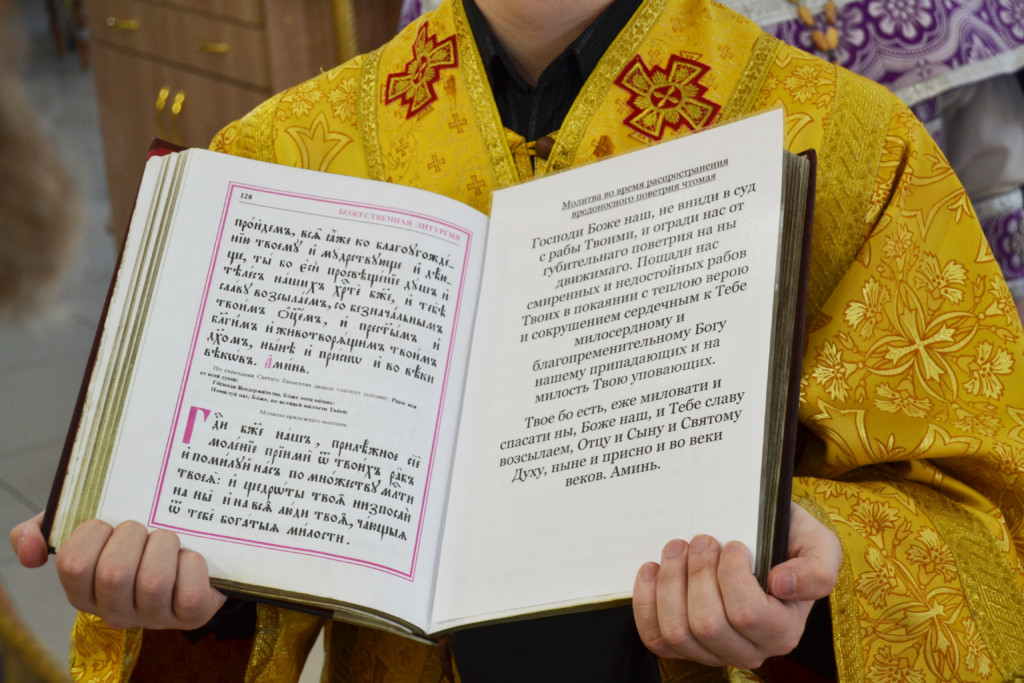 128
БОЖЕСТВЕННАЯ ЛИТУРГИЯ
про́йдемъ, всѧ̑ ꙗ҆̀же ко благоꙋгожде́-
нїю твоемꙋ̀ и҆ мꙋ́дрствꙋюще и҆ дѣ́ю-
ще. ты́ бо є҆сѝ просвѣще́нїе дꙋ́шъ и҆
тѣле́съ на́шихъ хрⷭ҇тѐ бж҃е, и҆ тебѣ̀
сла́вꙋ возсыла́емъ, со безнача́льнымъ
твои́мъ ѻ҆ц҃е́мъ, и҆ прест҃ы́мъ и҆
бл҃ги́мъ и҆ животворѧ́щимъ твои́мъ
дх҃омъ, ны́нѣ и҆ при́снѡ и҆ во вѣ́ки
вѣкѡ́въ. А҆ми́нь.
По окончании Святаго Евангелия диакон глаголет ектению: Рцем вси
от всей души:
Господи Вседержителю, Боже отец наших:
Помилуй нас, Боже, по велицей милости Твоей:
Молитва прилежнаго моления:
Гдⷭ҇и бж҃е на́шъ, прилѣ́жное сїѐ
моле́нїе прїимѝ ѿ твои́хъ ра̑бъ
и҆ поми́лꙋй на́съ по мно́жествꙋ мл҇ти
твоеѧ̀: и҆ щедрѡ́ты твоѧ̑ низпослѝ
на ны̀ и҆ на всѧ̑ лю́ди твоѧ̑, ча́ющыѧ
ѿ тебє̀ бога́тыѧ ми́лости.
Молитва во время распространения
вредоносного поветрия чтомая
Господи Боже наш, не вниди в суд
с рабы Твоими, и огради нас от
губительнаго поветрия на ны
движимаго. Пощади нас
смиренных и недостойных рабов
Твоих в покаянии с теплою верою
и сокрушением сердечным к Тебе
милосердному и
благопременительному Богу
нашему припадающих и на
милость Твою уповающих.
Твое бо есть, еже миловати и
спасати ны, Боже наш, и Тебе славу
возсылаем, Отцу и Сыну и Святому
Духу, ныне и присно и во веки
веков. Аминь.